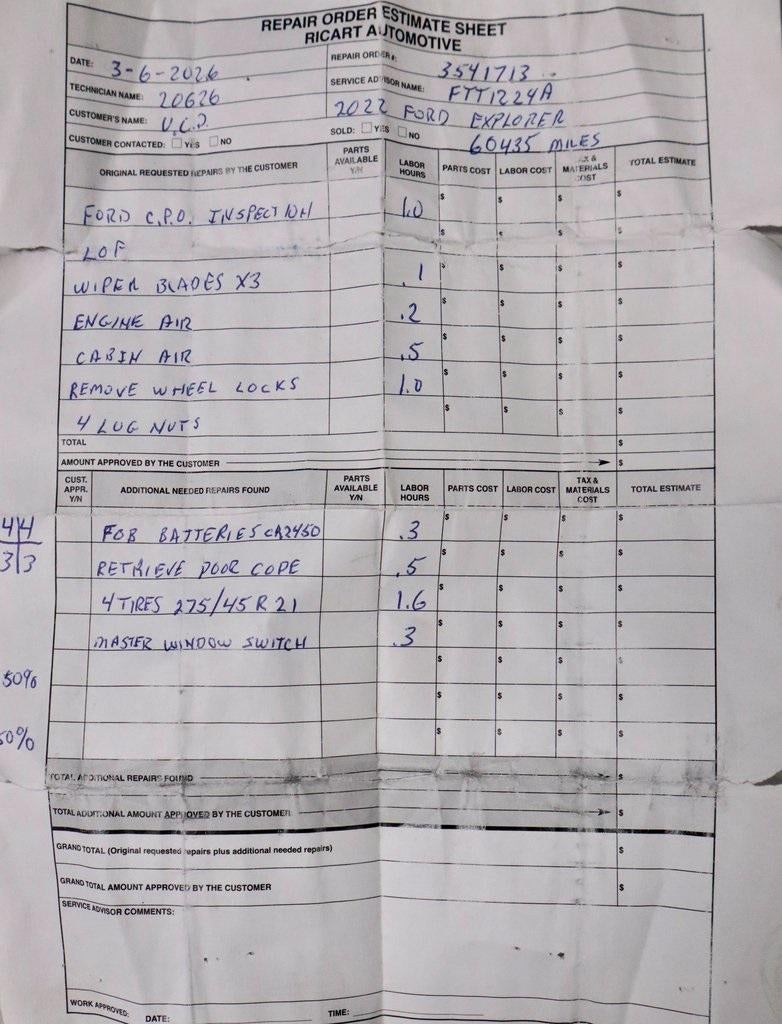 REPAIR ORDER ESTIMATE SHEET
RICART AUTOMOTIVE
DATE: 3-6-2026
REPAIR ORDER#: 3541713
TECHNICIAN NAME: 20626
SERVICE ADVISOR NAME: FTT1224A
CUSTOMER'S NAME: U.C.D.
2022 FORD EXPLORER
CUSTOMER CONTACTED: YES NO
SOLD: YES NO
60435 MILES
ORIGINAL REQUESTED REPAIRS BY THE CUSTOMER PARTS AVAILABLE Y/N LABOR HOURS PARTS COST LABOR COST TAX & MATERIALS COST TOTAL ESTIMATE
FORD C.P.O. INSPECTION 1.0 $ $ $ $
LOF $ $ $ $
WIPER BLADES X3 .1 $ $ $ $
ENGINE AIR .2 $ $ $ $
CABIN AIR .5 $ $ $ $
REMOVE WHEEL LOCKS 1.0 $ $ $ $
4 LUG NUTS $ $ $ $
TOTAL $
AMOUNT APPROVED BY THE CUSTOMER $
CUST. APPR. Y/N ADDITIONAL NEEDED REPAIRS FOUND PARTS AVAILABLE Y/N LABOR HOURS PARTS COST LABOR COST TAX & MATERIALS COST TOTAL ESTIMATE
4 4 FOB BATTERIES CR2450 .3 $ $ $ $
3 3 RETRIEVE DOOR CODE .5 $ $ $ $
4 TIRES 275/45 R 21 1.6 $ $ $ $
MASTER WINDOW SWITCH .3 $ $ $ $
50% $ $ $ $
$ $ $ $
50% $ $ $ $
TOTAL ADDITIONAL REPAIRS FOUND $
TOTAL ADDITIONAL AMOUNT APPROVED BY THE CUSTOMER $
GRAND TOTAL (Original requested repairs plus additional needed repairs) $
GRAND TOTAL AMOUNT APPROVED BY THE CUSTOMER $
SERVICE ADVISOR COMMENTS:
WORK APPROVED: DATE: TIME: